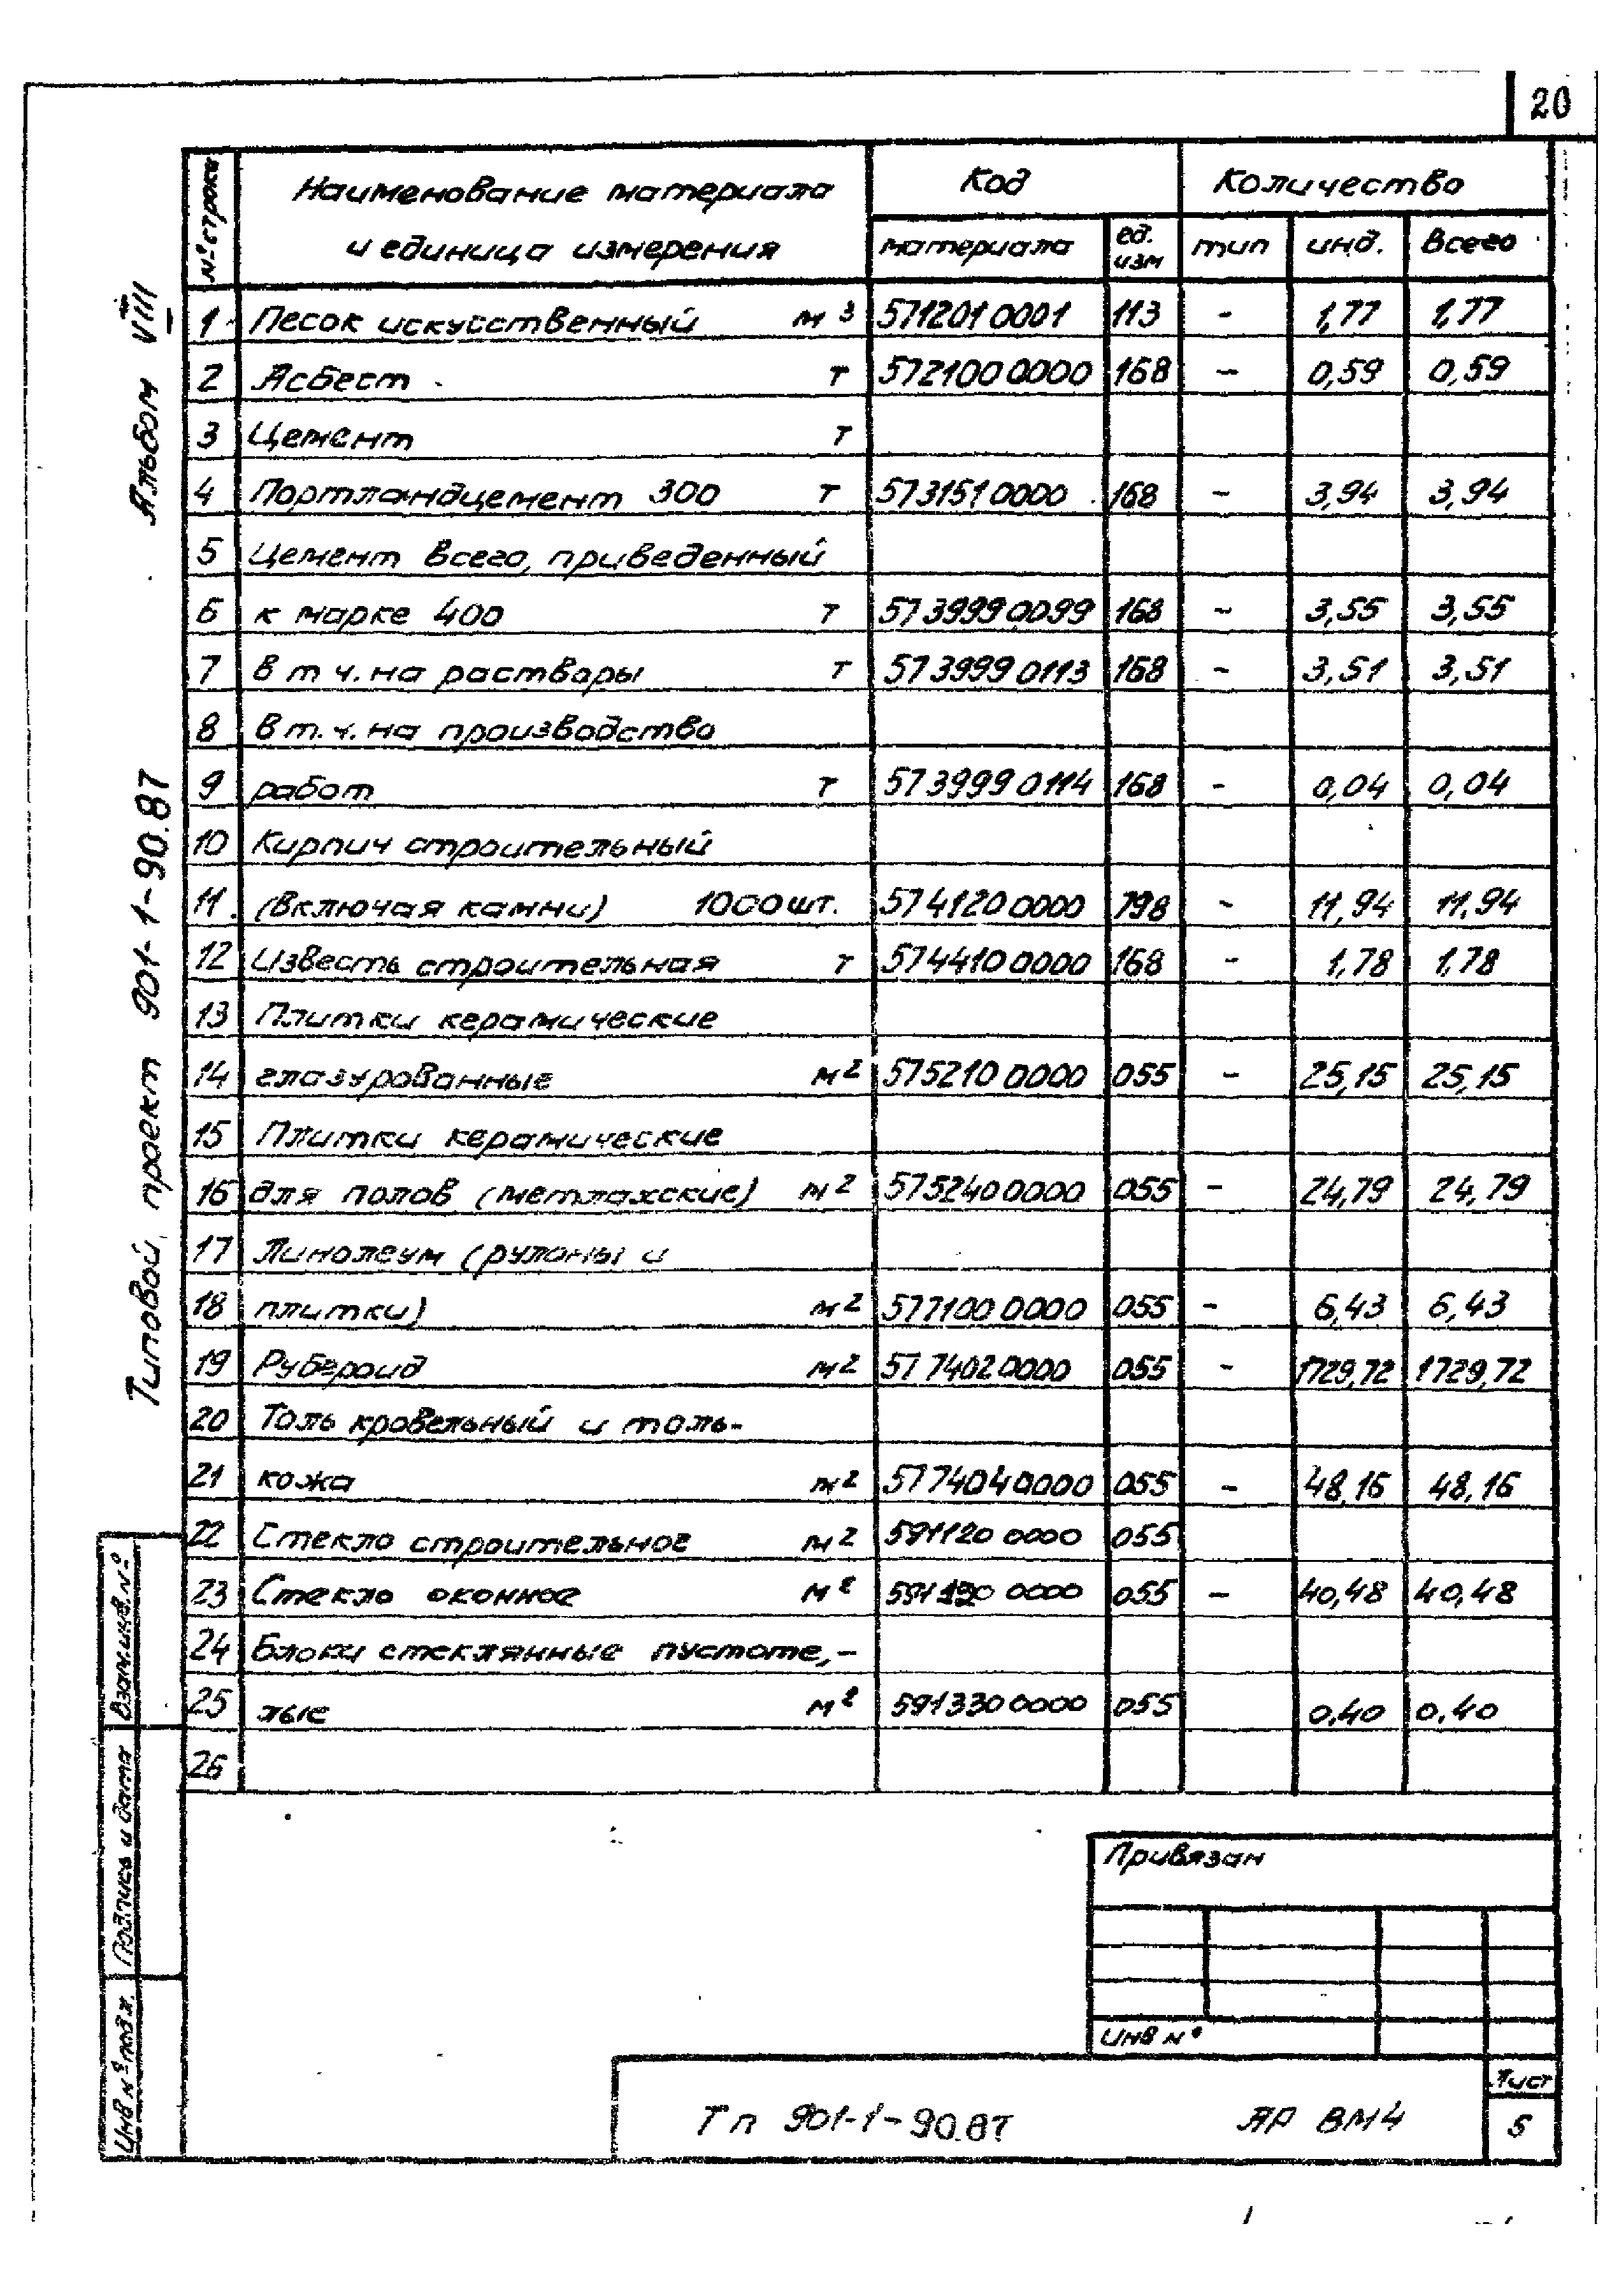 20
№ строки
Наименование материала и единица измерения
Код
Количество
материала
ед. изм
тип
инд.
Всего
1 Песок искусственный м3 571201 0001 113 - 1,77 1,77
2 Асбест т 572100 0000 168 - 0,59 0,59
3 Цемент т
4 Портландцемент 300 т 573151 0000 168 - 3,94 3,94
5 Цемент всего, приведенный
6 к марке 400 т 573999 0099 168 - 3,55 3,55
7 в т ч. на растворы т 573999 0113 168 - 3,51 3,51
8 в т. ч. на производство
9 работ т 573999 0114 168 - 0,04 0,04
10 Кирпич строительный
11 (включая камни) 1000 шт. 574120 0000 798 - 11,94 11,94
12 Известь строительная т 574410 0000 168 - 1,78 1,78
13 Плитки керамические
14 глазурованные м2 575210 0000 055 - 25,15 25,15
15 Плитки керамические
16 для полов (метлахские) м2 575240 0000 055 - 24,79 24,79
17 Линолеум (рулоны и
18 плитки) м2 577100 0000 055 - 6,43 6,43
19 Рубероид м2 577402 0000 055 - 1729,72 1729,72
20 Толь кровельный и толь-
21 кожа м2 577404 0000 055 - 48,16 48,16
22 Стекло строительное м2 591120 0000 055
23 Стекло оконное м2 0000 055 - 40,48 40,48
24 Блоки стеклянные пустоте,-
25 лые м2 591330 0000 055 0,40 0,40
26
Альбом VIII
Типовой проект 901-1-90.87
Взам.инв.№
Подпись и дата
Инв № подл.
Привязан
Инв №
Тп 901-1-90.87
АР ВМ4
Лист
5